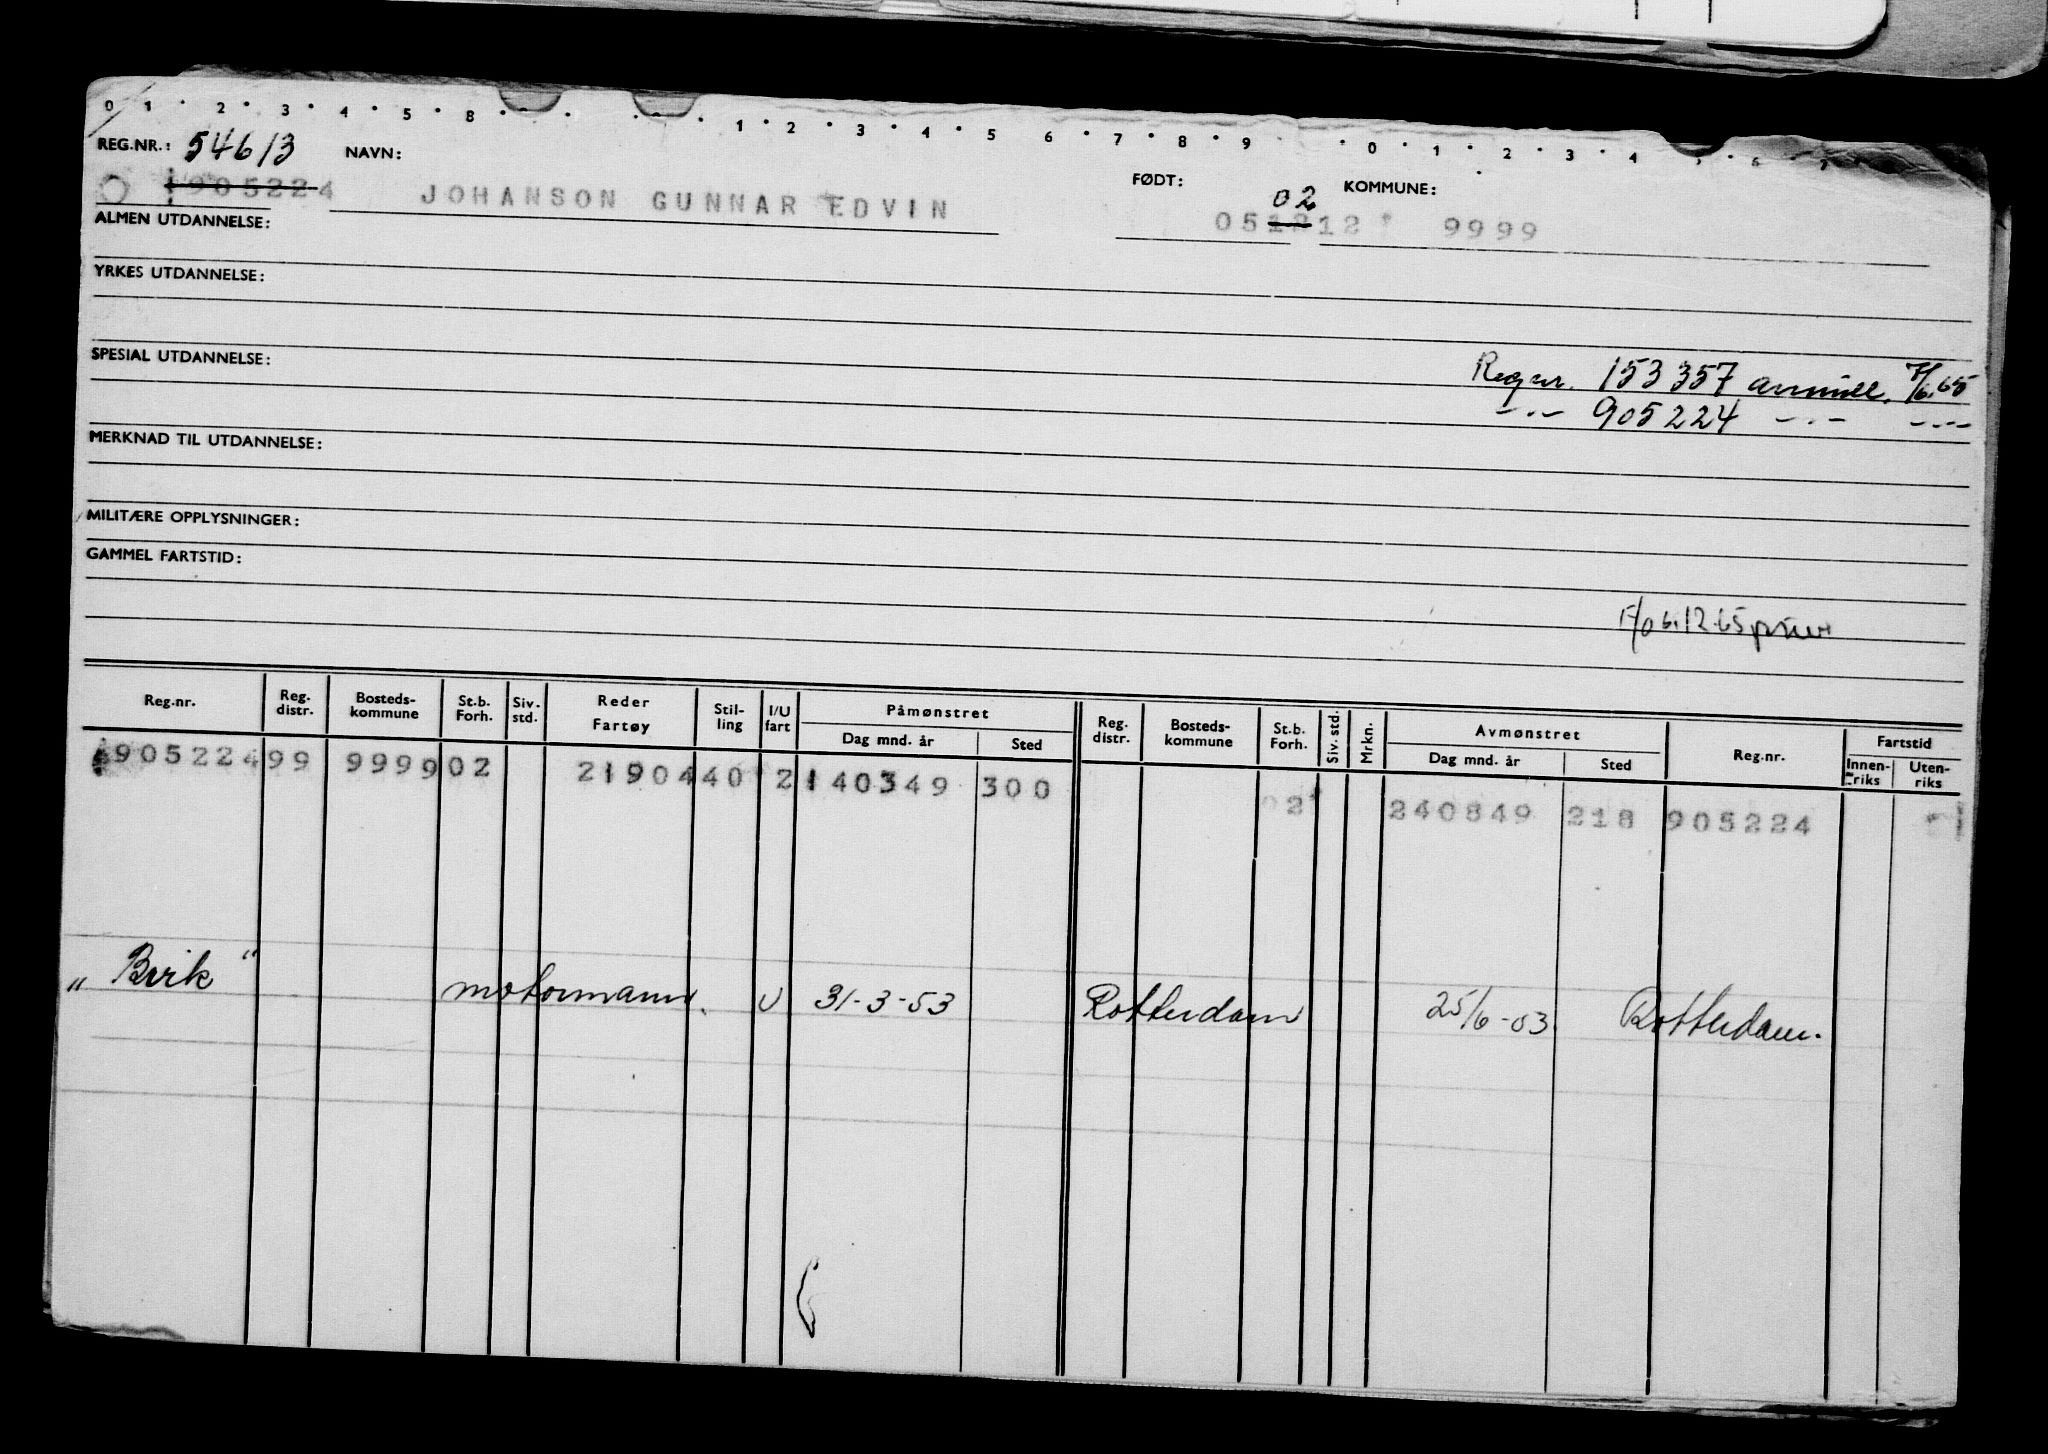 0 1 · 2 · 3 · 4 · 5 · 8 · · · 1 · 2 · 3 · 4 · 5 6 · 7 · 8 · 9 · 0 · 1 · 2 · 3 · 4 · 6
REG.NR.: 54613 NAVN: FØDT: KOMMUNE:
905224 JOHANSON GUNNAR EDVIN 02 05 12 12 9999
ALMEN UTDANNELSE:
YRKES UTDANNELSE:
SPESIAL UTDANNELSE:
Reg nr. 153357 annull. 7/6.65
-.- 905224 -.- -.-
MERKNAD TIL UTDANNELSE:
MILITÆRE OPPLYSNINGER:
GAMMEL FARTSTID:
6.12.65
Reg.nr. Reg. distr. Bosteds-kommune St.b. Forh. Siv. std. Reder Fartøy Stil-ling I/U fart Påmønstret Dag mnd. år Sted Reg. distr. Bosteds-kommune St.b. Forh. Siv. std. Mrkn. Avmønstret Dag mnd. år Sted Reg.nr. Fartstid Innen-riks Uten-riks
905224 99 9999 02 21904 40 2 140349 300 02 240849 218 905224
motormann. U 31-3-53 Rotterdam 25/6-53 Rotterdam.